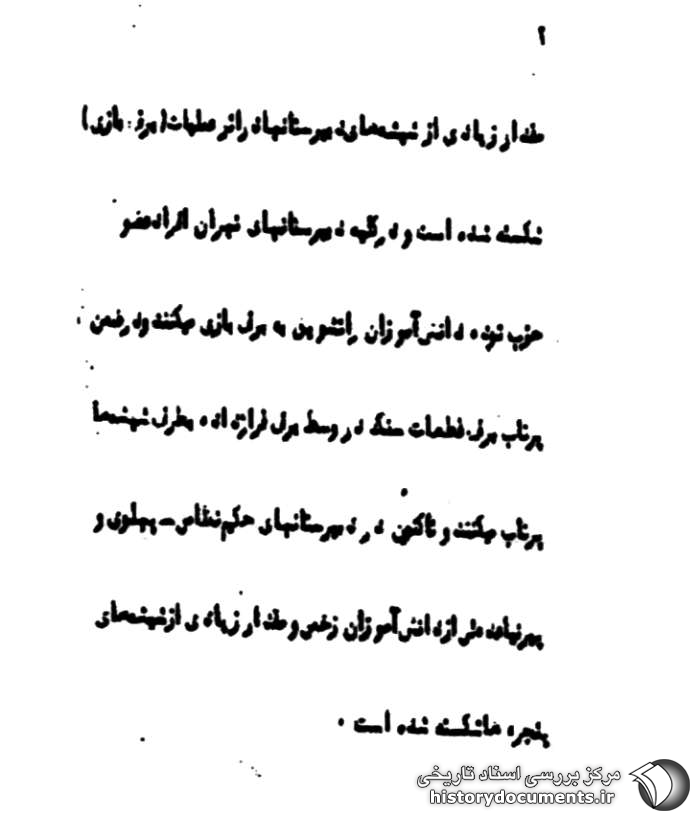 ۲
مقدار زیادی از شیشه‌های دبیرستانها در اثر عملیات (برف بازی)
شکسته شده است و در کلیه دبیرستانهای تهران افراد عضو
حزب توده دانش‌آموزان را تشویق به برف بازی میکنند و در ضمن
پرتاب برف قطعات سنگ در وسط برف قرار داده بطرف شیشه‌ها
پرتاب میکنند و تاکنون در دبیرستانهای حکیم نظامی - پهلوی و
از دانش‌آموزان زخمی و مقدار زیادی از شیشه‌های
پنجره‌ها شکسته شده است .
مرکز بررسی اسناد تاریخی
historydocuments.ir